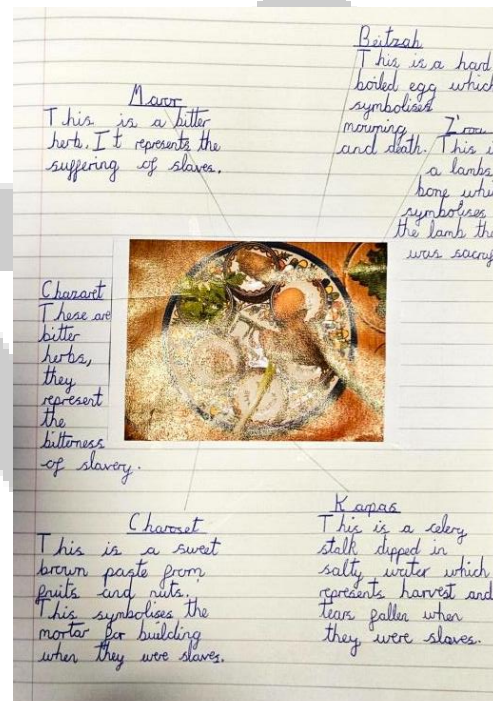 Beitzah
This is a hard
boiled egg which
symbolises
mourning
and death.
Z'roa
This is
a lambs
bone whi
symbolises
the lamb tha
was sacrif
Maror
This is a bitter
herb. It represents the
suffering of slaves.
Chazaret
These are
bitter
herbs,
they
represent
the
bitterness
of slavery.
Charoset
This is a sweet
brown paste from
fruits and nuts.
This symbolises the
mortar for building
when they were slaves.
Kapas
This is a celery
stalk dipped in
salty water which
represents harvest and
tears fallen when
they were slaves.